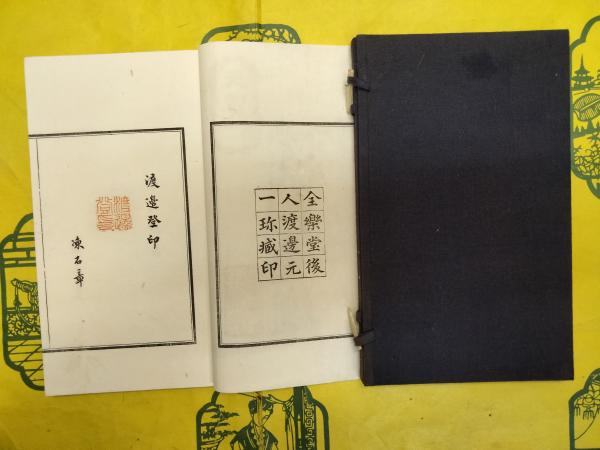 全樂堂後
人渡邊元
一珍藏印
渡邊登印
凍石章